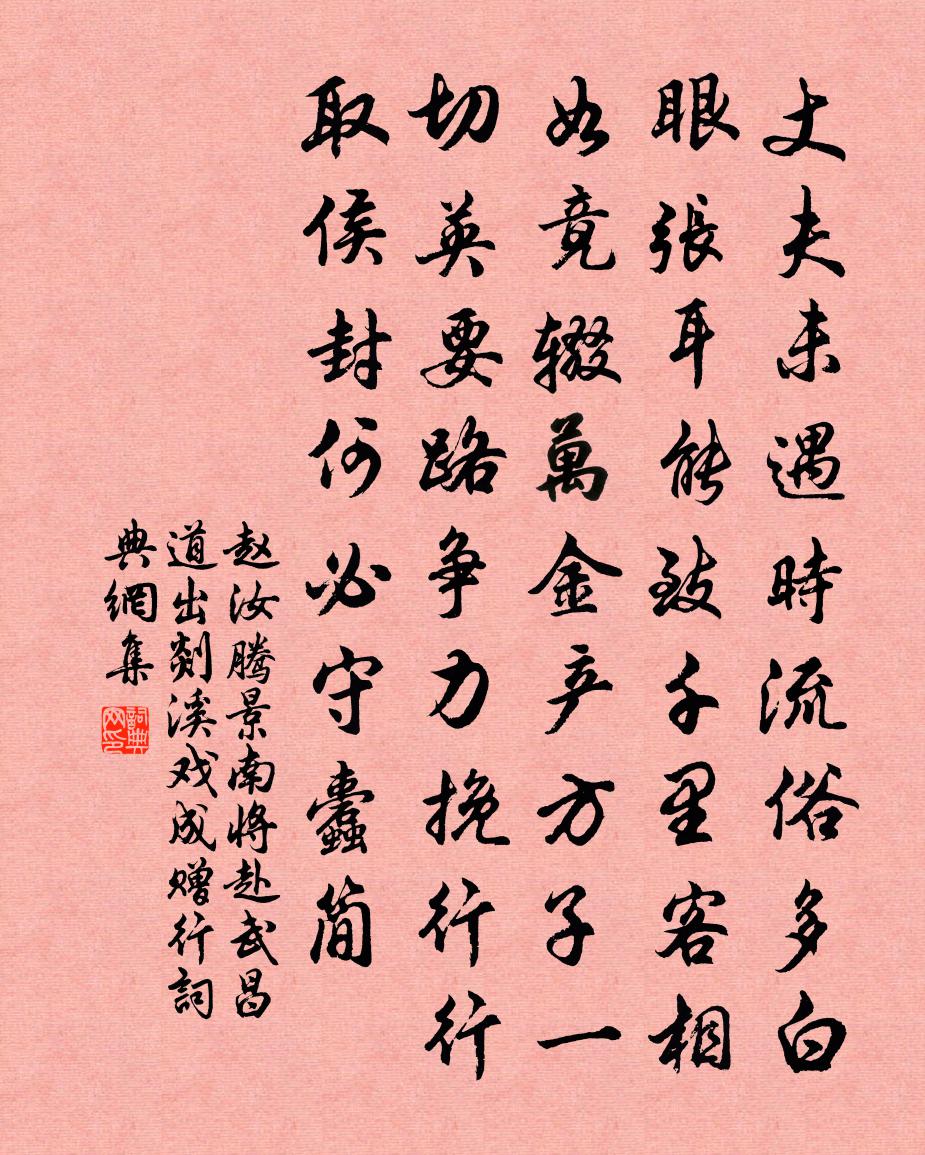 丈夫未遇時流俗多白
眼張耳能致千里客相
如竟辍萬金产方子一
切英要路争力挽行行
取侯封何必守蠹简
赵汝腾景南将赴武昌
道出剡溪戏成赠行詞
典網集
詞典
网印